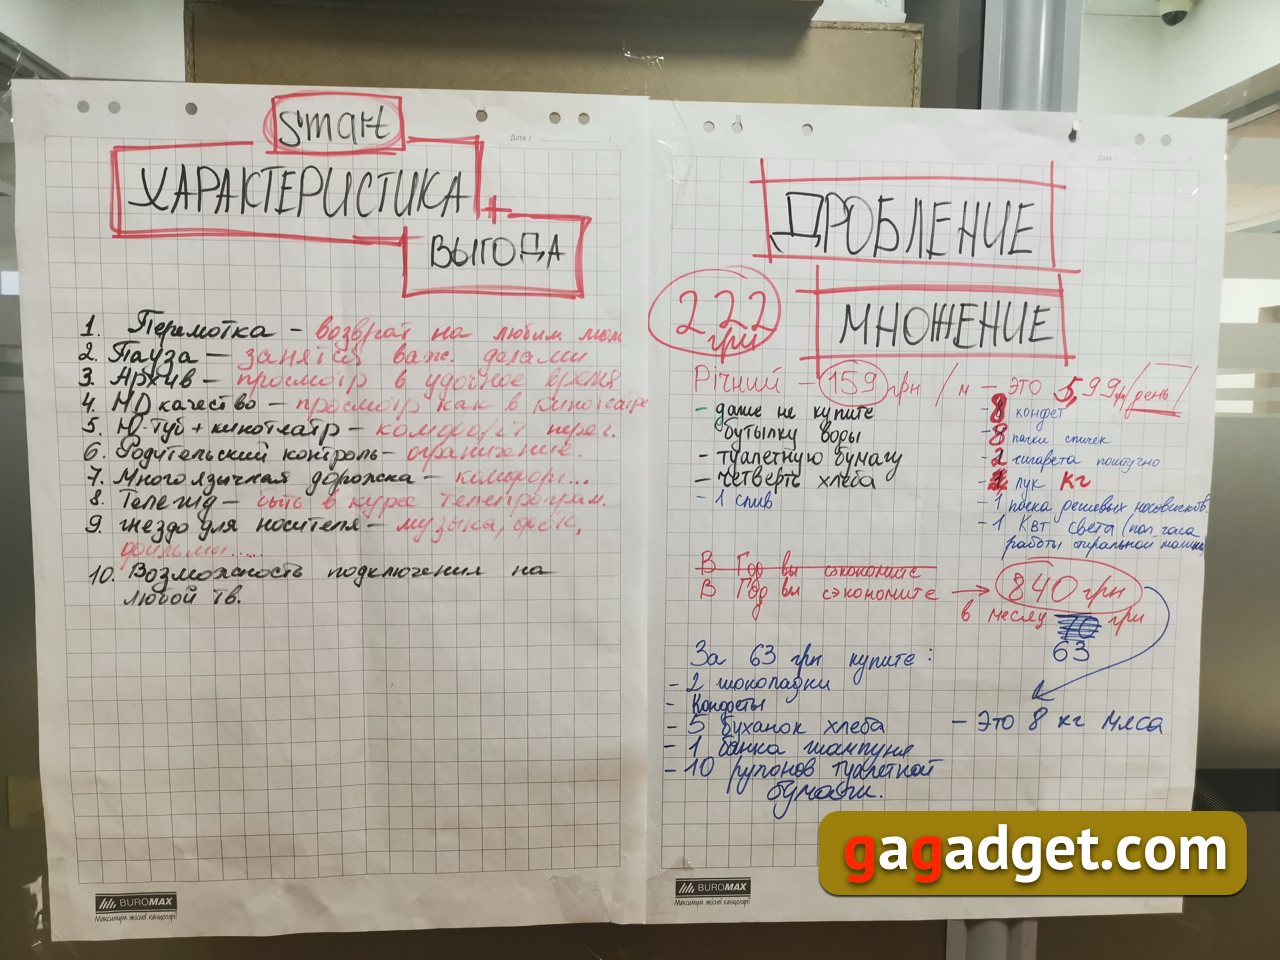 Smart
ХАРАКТЕРИСТИКА
+
ВЫГОДА
1. Перемотка – возврат на любим. мом
2. Пауза – заняться важ. делами
3. Архив – просмотр в удобное время
4. HD качество – просмотр как в кинотеатре
5. Ю-туб + кинотеатр – комфорт
6. Родительский контроль – ограничение.
7. Многоязичная дорожка – комфорт...
8. Телегид – быть в курсе телепрограм.
9. гнездо для носителя – музыка, фото,
фильмы.....
10. Возможность подключения на
любой тв.
BUROMAX
Максимум якісної канцелярії
Дата /
ДРОБЛЕНИЕ
222
грн
МНОЖЕНИЕ
Річний – 159 грн / м – это 5,99 гр/день
- даже не купите
бутылку воды
- туалетную бумагу
- четверть хлеба
- 1 слив
- 8 конфет
- 8 пачки спичек
- 2 сигарета поштучно
- лук кг
- 1 пачка дешевых носовичков.
- 1 Квт света (пол часа
работы стиральной машинки)
В Год вы сэкономите
В Год вы сэкономите → 840 грн
в месяц 70 грн
63
За 63 грн купите:
- 2 шоколадки
- Конфеты
- 5 буханок хлеба
- 1 банка шампуня
- 10 рулонов туалетной
бумаги.
- Это 8 кг мяса
BUROMAX
Максимум якісної канцелярії
Дата /
gagadget.com